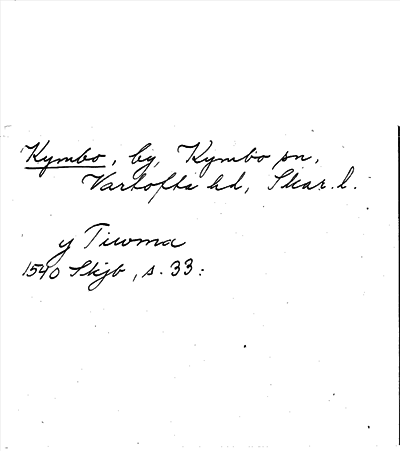 Kymbo, by, Kymbo sn,
Vartofta hd, Skar. l.
y Tiwma
1540 Skjb, s. 33: